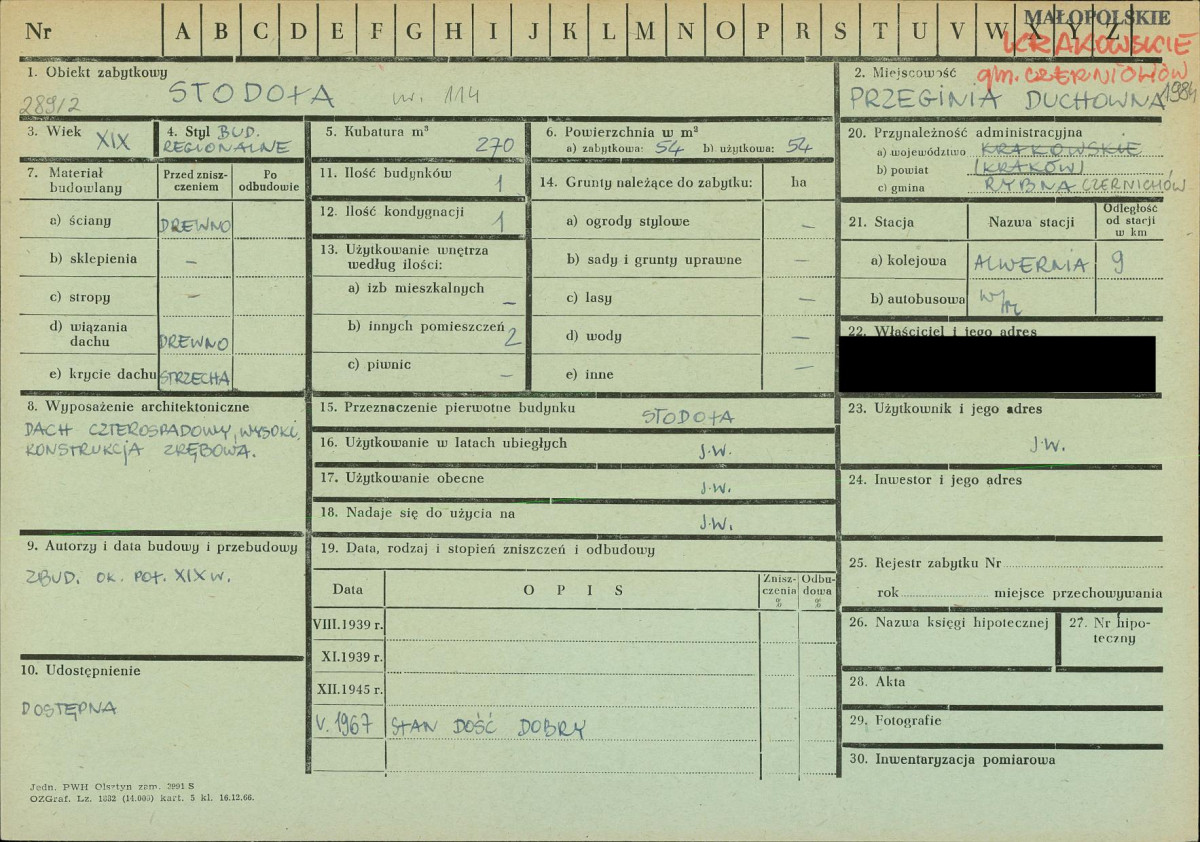 Nr A B C D E F G H I J K L M N O P R S T U V W X Y Z
MAŁOPOLSKIE
KRAKOWSKIE
gm. CZERNICHÓW
1984
1. Obiekt zabytkowy
289/2
STODOŁA nr. 114
2. Miejscowość
PRZEGINIA DUCHOWNA
3. Wiek XIX
4. Styl BUD. REGIONALNE
5. Kubatura m³
270
6. Powierzchnia w m²
a) zabytkowa: 54 b) użytkowa: 54
7. Materiał budowlany
Przed zniszczeniem
Po odbudowie
a) ściany DREWNO
b) sklepienia –
c) stropy –
d) wiązania dachu DREWNO
e) krycie dachu STRZECHA
8. Wyposażenie architektoniczne
DACH CZTEROSPADOWY, WYSOKI,
KONSTRUKCJA ZRĘBOWA.
9. Autorzy i data budowy i przebudowy
ZBUD. OK. POŁ. XIX W.
10. Udostępnienie
DOSTĘPNA
11. Ilość budynków 1
12. Ilość kondygnacji 1
13. Użytkowanie wnętrza
według ilości:
a) izb mieszkalnych –
b) innych pomieszczeń 2
c) piwnic –
14. Grunty należące do zabytku: ha
a) ogrody stylowe –
b) sady i grunty uprawne –
c) lasy –
d) wody –
e) inne –
15. Przeznaczenie pierwotne budynku STODOŁA
16. Użytkowanie w latach ubiegłych J.W.
17. Użytkowanie obecne J.W.
18. Nadaje się do użycia na J.W.
19. Data, rodzaj i stopień zniszczeń i odbudowy
Data O P I S Zniszczenia % Odbudowa %
VIII.1939 r.
XI.1939 r.
XII.1945 r.
V. 1967 STAN DOŚĆ DOBRY
20. Przynależność administracyjna
a) województwo KRAKOWSKIE
b) powiat (KRAKÓW)
c) gmina RYBNA CZERNICHÓW
21. Stacja Nazwa stacji Odległość od stacji w km
a) kolejowa ALWERNIA 9
b) autobusowa W/M
22. Właściciel i jego adres
23. Użytkownik i jego adres
J.W.
24. Inwestor i jego adres
25. Rejestr zabytku Nr
rok miejsce przechowywania
26. Nazwa księgi hipotecznej
27. Nr hipoteczny
28. Akta
29. Fotografie
30. Inwentaryzacja pomiarowa
Jedn. PWH Olsztyn zam. 3991 S
OZGraf. Lz. 1332 (14.000) kart. 5 kl. 16.12.66.